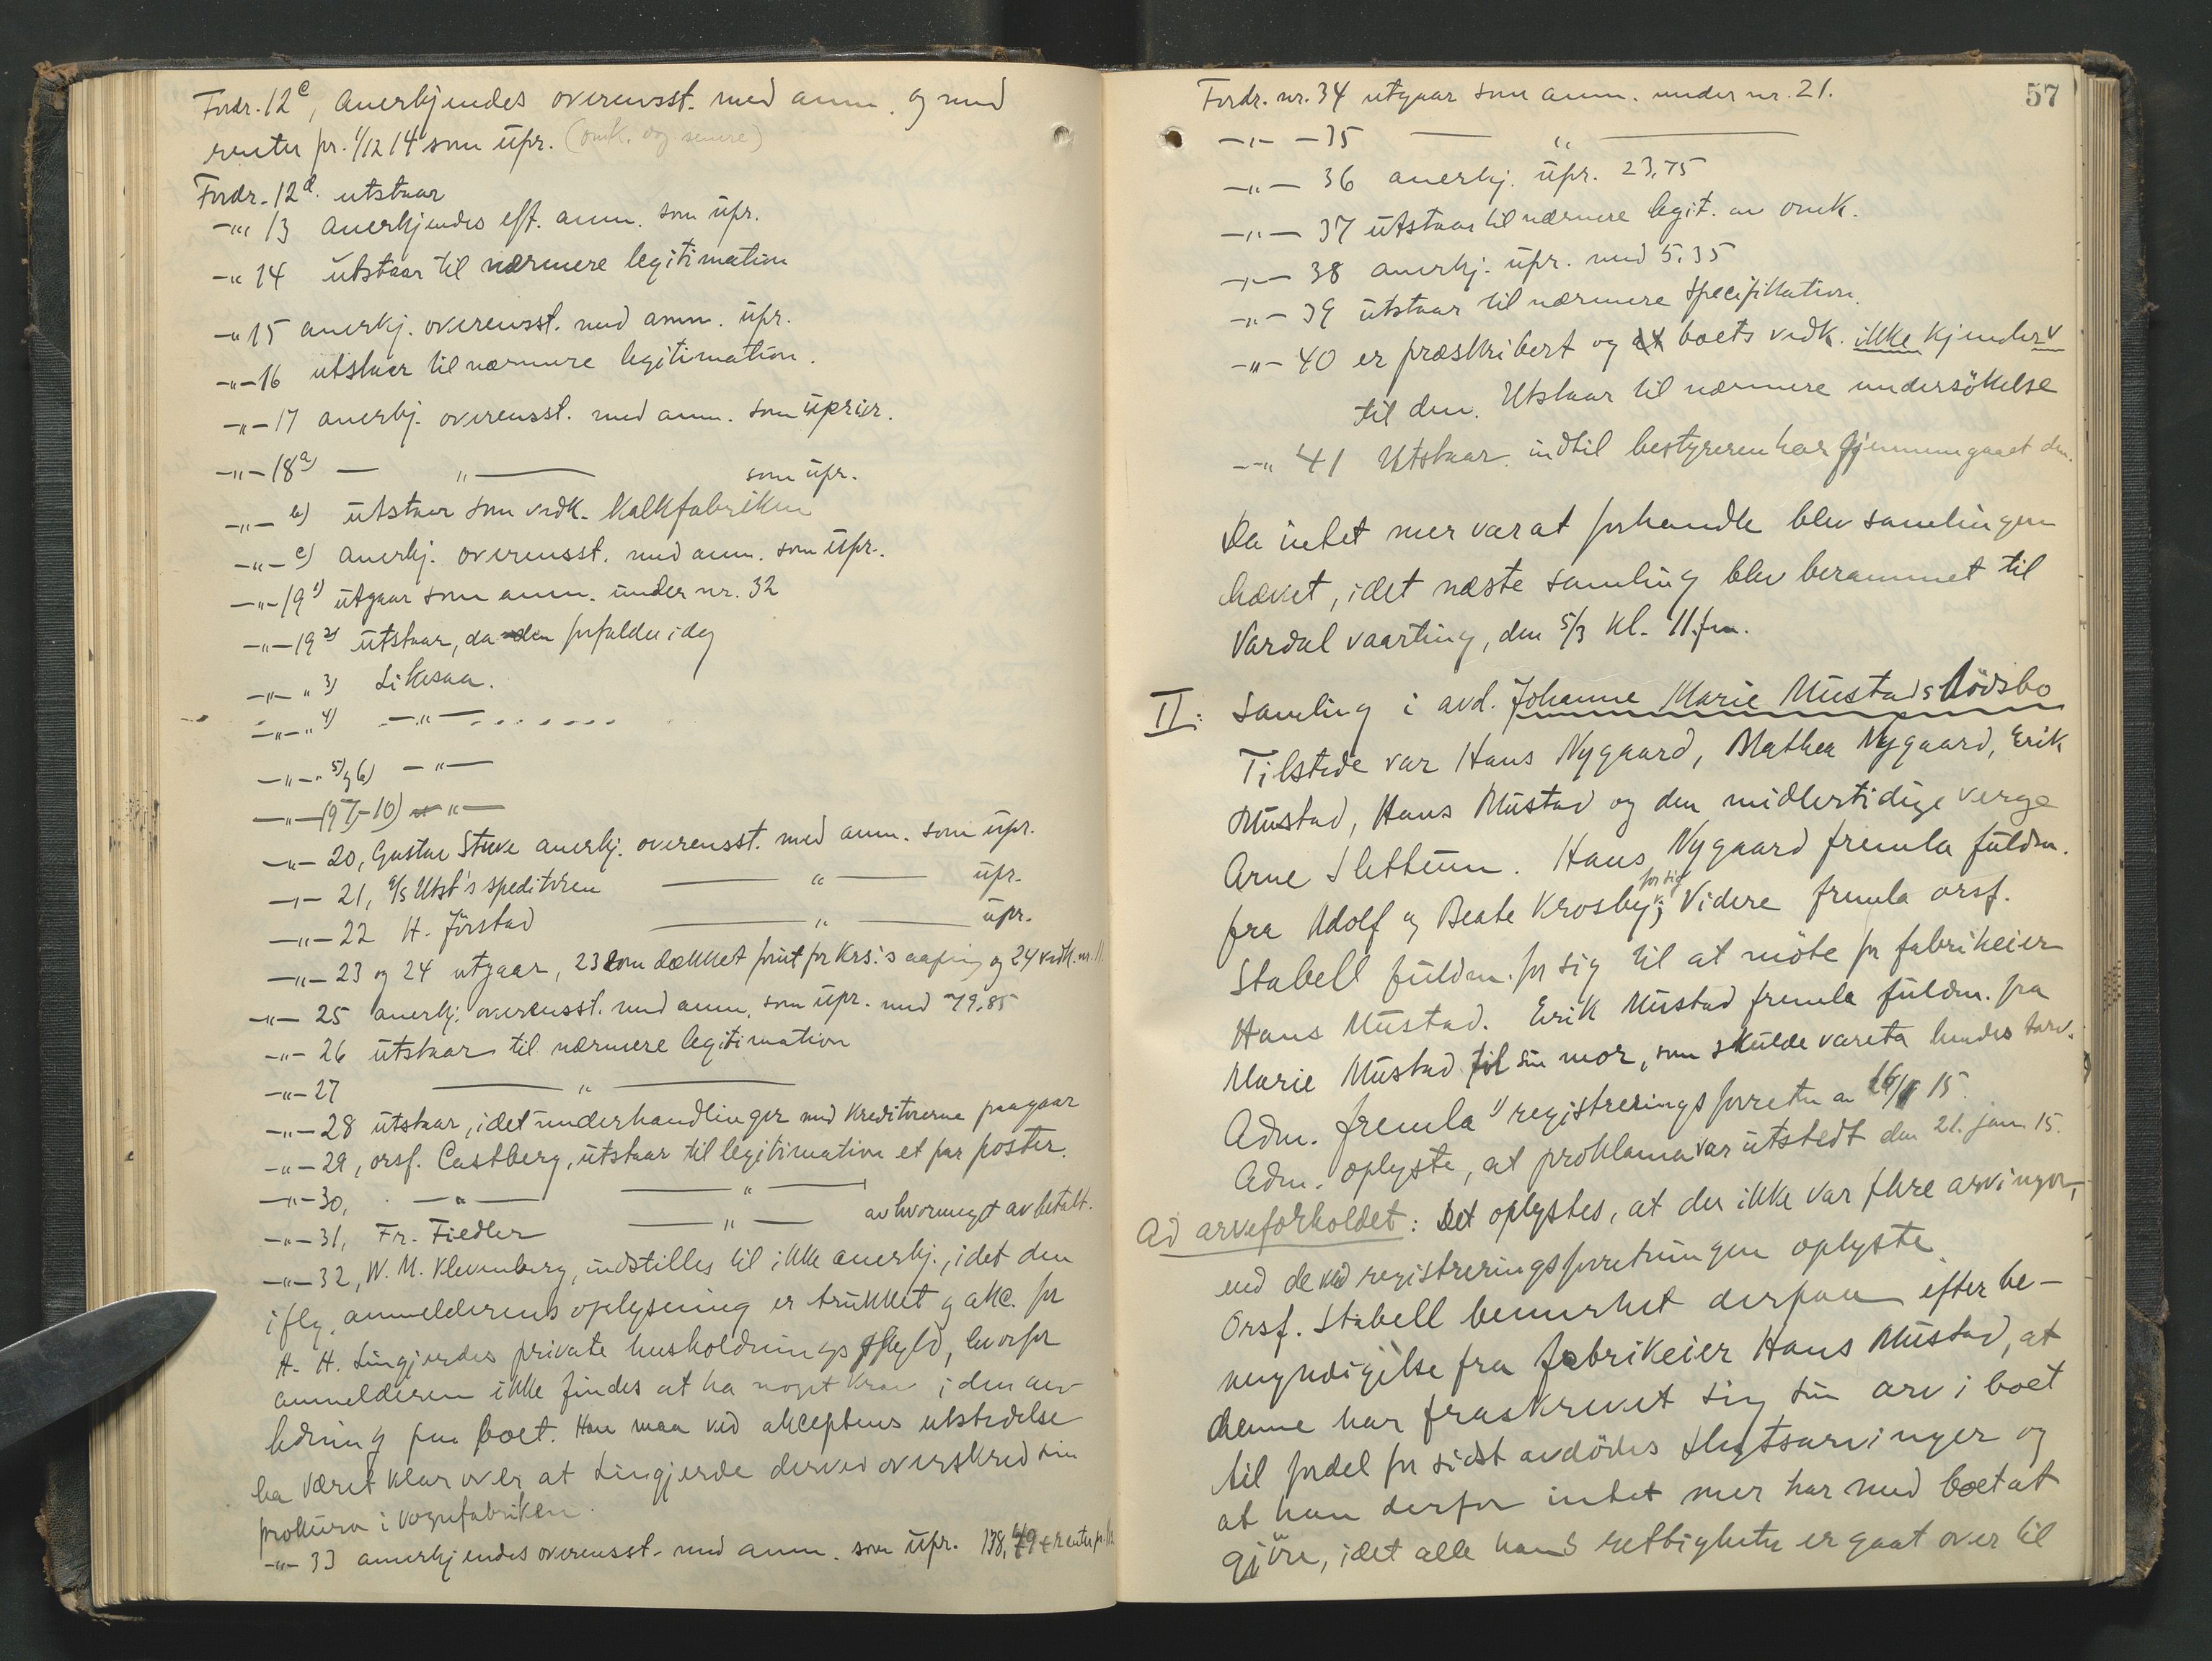 Fordr. 12c, anerkjendes overensst. med anm. og med
renter pr. 1/12 14 som upr. (omk. dog senere)
Fordr. 12d. utstaar
-"- 13 anerkjendes eft. anm. som upr.
-"- 14 utstaar til nærmere legitimation
-"- 15 anerkj. overensst. med anm. upr.
-"- 16 utstaar til nærmere legitimation.
-"- 17 anerkj. overensst. med anm. som uprior.
-"- 18a) — " — som upr.
-"- b) utstaar som vedk. Kalkfabriken
-"- c) anerkj. overensst. med anm. som upr.
-"- 19 1) utgaar som anm. under nr. 32
-"- 19 2) utstaar, da den forfalder idag
-"- " 3) Likesaa.
-"- " 4) -"- . . . . . . .
-"- " 5) og 6) -"-
-"- (9 7)-10) -"-
-"- 20, Gustav Stuve anerkj. overensst. med anm. som upr.
-"- 21, A/S Utst's speditören — " — upr.
-"- 22 H. Förstad — " — upr.
-"- 23 og 24 utgaar, 23 som dækket forut for krs.'s aapning og 24 vedk. nr. 11
-"- 25 anerkj. overensst. med anm. som upr. med 79.85
-"- 26 utstaar til nærmere legitimation
-"- 27 — " —
-"- 28 utstaar, idet underhandlinger med kreditorerne paagaar
-"- 29, orsf. Castberg, utstaar til legitimation et par poster.
-"- 30, -"- — " —
-"- 31, Fr. Fiedler — " — av hvormeget avbetalt.
-"- 32, W. M. Klevenberg, indstilles til ikke anerkj., idet den
iflg. anmelderens oplysning er trukket og akc. for
H. H. Lingjerdes private husholdningsgjæld, hvorfor
anmelderen ikke findes at ha noget krav i den an-
ledning paa boet. Han maa ved akceptens utstedelse
ha været klar over at Lingjerde derved overskred sin
prokura i vognfabriken.
-"- 33 anerkjendes overensst. med anm. som upr. 138,49 + renter pr.
57
Fordr. nr. 34 utgaar som anm. under nr. 21.
-"- - 35 — " —
-"- 36 anerkj. upr. 23,75
-"- 37 utstaar til nærmere legit. av omk.
-"- 38 anerkj. upr. med 5.35
-"- 39 utstaar til nærmere specifikation.
-"- 40 er præskribert og boets vedk. ikke kjender
til den. Utstaar til nærmere undersökelse
-"- 41 Utstaar indtil bestyreren har gjennemgaaet den.
Da intet mer var at forhandle blev samlingen
hævet, idet næste samling blev berammet til
Vardal vaarting, den 5/3 kl. 11 fm.
II: Samling i avd. Johanne Marie Mustads dödsbo
Tilstede var Hans Nygaard, Mathea Nygaard, Erik
Mustad, Hans Mustad og den midlertidige verge
Arne Slettum. Hans Nygaard fremla fuldm.
fra Adolf og Beate Krosby; for sig Videre fremla orsf.
Stabell fuldm. for sig til at möte for fabrikeier
Hans Mustad. Erik Mustad fremla fuldm. fra
Marie Mustad til sin mor, som skulde vareta hendes tarv.
Adm. fremla 1) registreringsforretn. av 16/1 15.
Adm. oplyste, at proklama var utstedt den 21. jan. 15.
Ad arveforholdet: Det oplystes, at der ikke var flere arvinger,
end de ved registreringsforretningen oplyste.
Orsf. Stabell bemerket derpaa efter be-
myndigelse fra fabrikeier Hans Mustad, at
denne har fraskrevet sig sin arv i boet
til fordel for sidst avdödes slegtsarvinger og
at han derfor intet mer har med boet at
gjöre, idet alle hans rettigheter er gaat over til